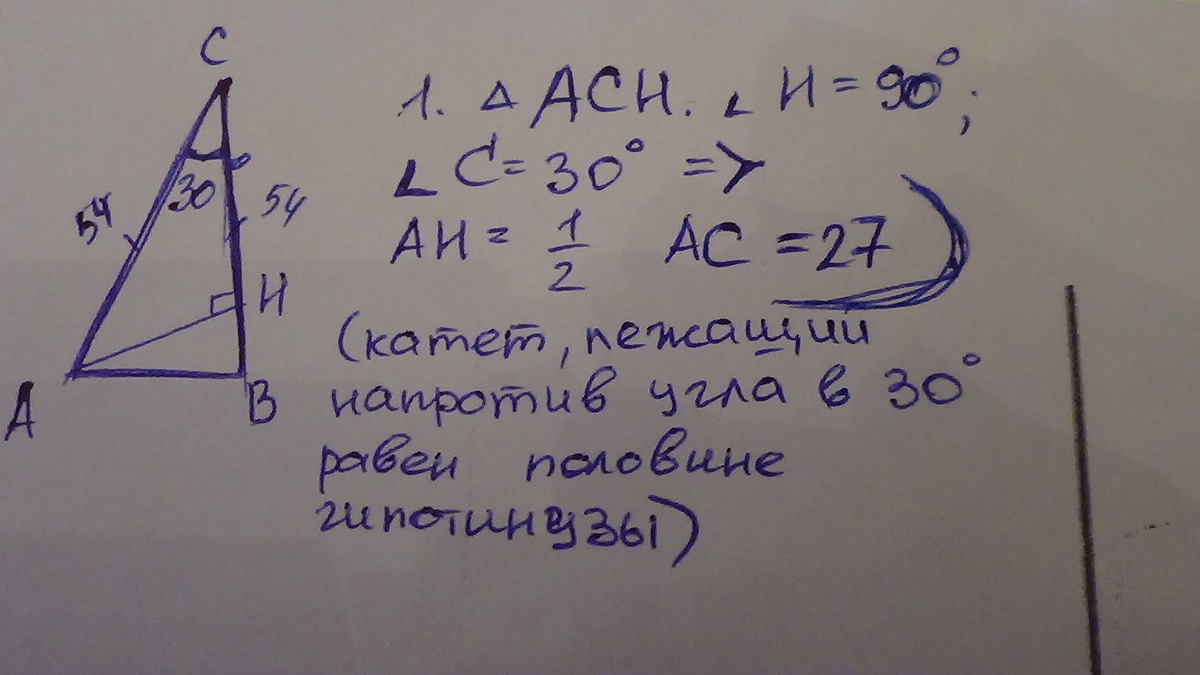 C
30
54
54
H
A
B
1. △ ACH. ∠ H = 90°;
∠ C = 30° =>
AH = 1/2 AC = 27
(катет, лежащий
напротив угла в 30°
равен половине
гипотинузы)